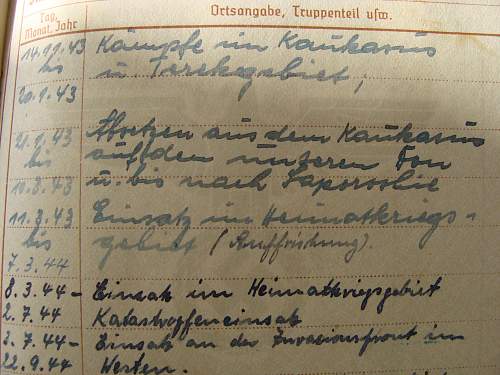 Tag, Monat, Jahr
Ortsangabe, Truppenteil usw.
14.11.43 Kämpfe im Kaukasus
bis u. Terekgebiet,
20.1.43
21.1.43 Absetzen aus dem Kaukasus
bis auf den unteren Don
10.3.43 u. bis nach Saporoshie
11.3.43 Einsatz im Heimatkriegs-
bis gebiet (Auffrischung).
7.3.44
8.3.44- Einsatz im Heimatkriegsgebiet
2.7.44 Katastroffeneinsatz
3.7.44- Einsatz an der Invasionsfront im
22.9.44 Westen.